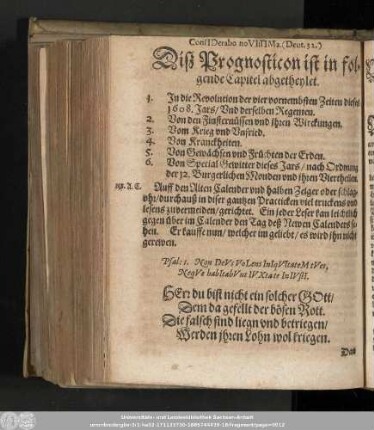 ConsIDerabo noVIssIMa. (Deut. 32.)
Diß Prognosticon ist in fol-
gende Capitel abgetheylet.
1. In die Revolution der vier vornembsten Zeiten dieses
1608. Jars / Vnd derselben Regenten.
2. Von den Finsternüssen vnd ihren Wirckungen.
3. Vom Krieg vnd Vnfried.
4. Von Kranckheiten.
5. Von Gewächsen vnd Früchten der Erden.
6. Von Special Gewitter dieses Jars / nach Ordnung
der 12. Burgerlichen Monden vnd ihren Viertheilen.
Auff den Alten Calender vnd halben Zeiger oder schlag-
vhr / durchauß in diser gantzen Practicken viel truckens vnd
lesens zuvermeiden / gerichtet. Ein jeder Leser kan leichtlich
gegen über im Calender den Tag deß Newen Calenders se-
hen. Er kauffe nun / welcher im geliebt / es wird ihn nicht
gerewen.
Psal: 5. Non DeVs VoLens InIqVItateM tV es,
NeqVe habItabVnt IVXta te InIVstI.
HErr du bist nicht ein solcher GOtt /
Dem da gefellt der bösen Rott.
Die falsch sind liegn vnd betriegen /
Werden jhren Lohn wol kriegen.
Das
Universitäts- und Landesbibliothek Sachsen-Anhalt